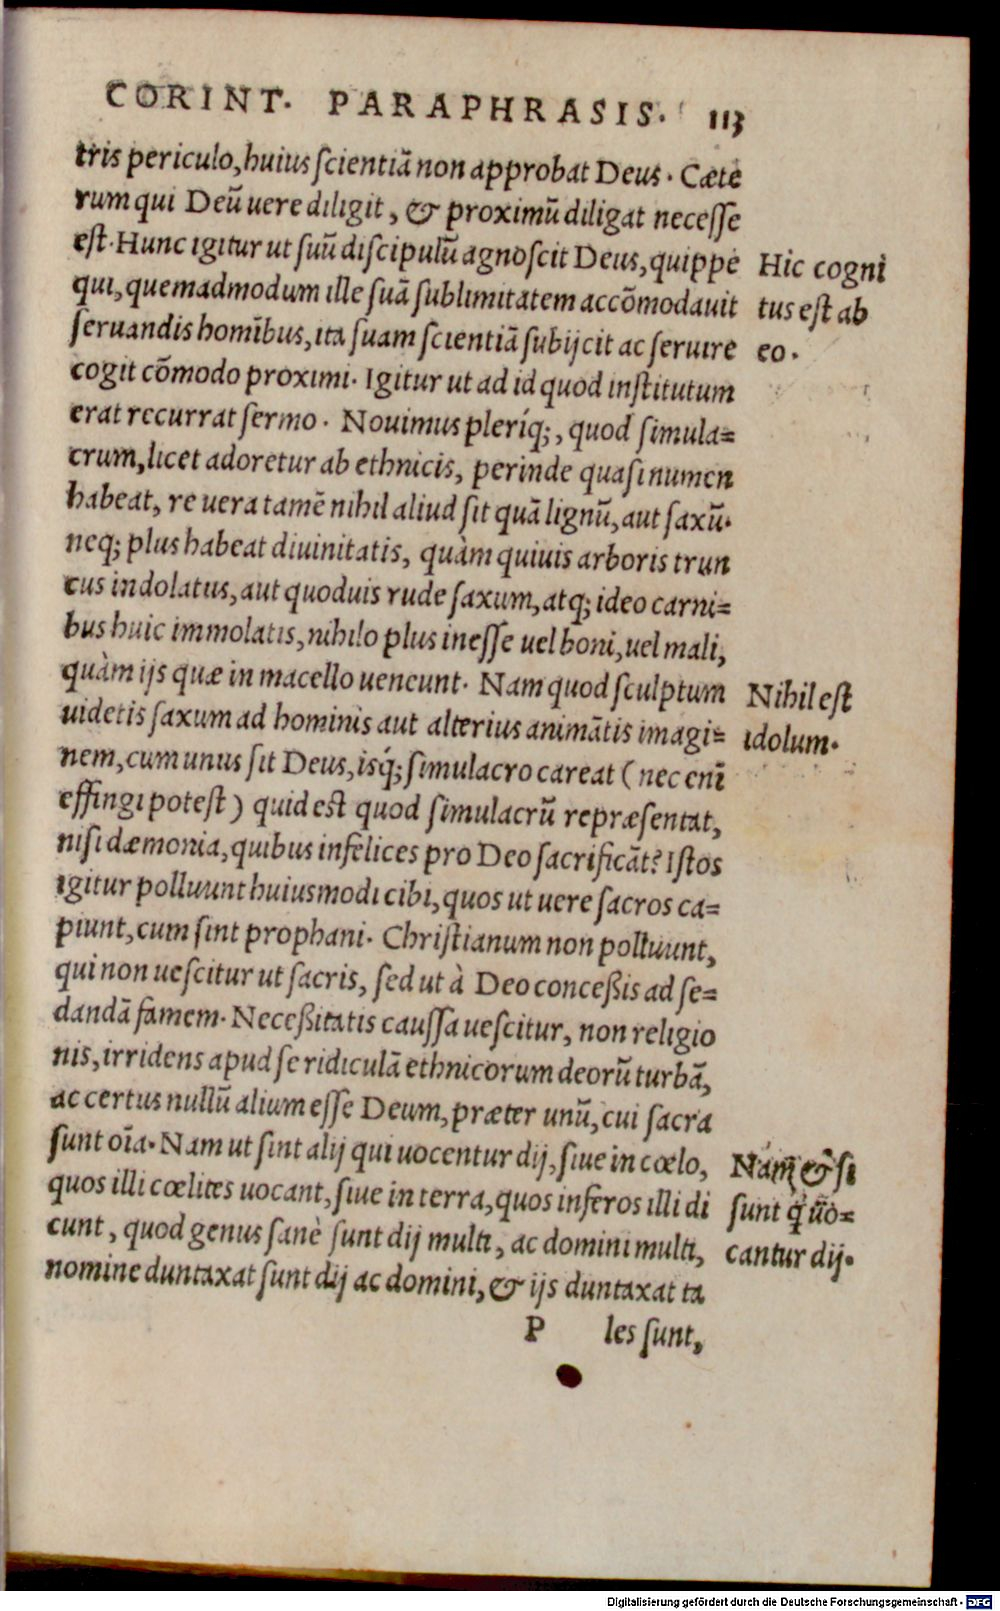 CORINT. PARAPHRASIS. 113
tris periculo, huius scientiā non approbat Deus. Cæte
rum qui Deū uere diligit, & proximū diligat necesse
est. Hunc igitur ut suū discipulū agnoscit Deus, quippe
qui, quemadmodum ille suā sublimitatem accōmodauit
seruandis homībus, ita suam scientiā subijcit ac seruire
cogit cōmodo proximi. Igitur ut ad id quod institutum
erat recurrat sermo. Nouimus pleríq;, quod simula=
crum, licet adoretur ab ethnicis, perinde quasi numen
habeat, re uera tamē nihil aliud sit quā lignū, aut saxū.
neq; plus habeat diuinitatis, quàm quiuis arboris trun
cus indolatus, aut quoduis rude saxum, atq; ideo carni=
bus huic immolatis, nihilo plus inesse uel boni, uel mali,
quàm ijs quæ in macello ueneunt. Nam quod sculptum
uidetis saxum ad hominis aut alterius animātis imagi=
nem, cum unus sit Deus, isq́; simulacro careat (nec enī
effingi potest) quid est quod simulacrū repræsentat,
nisi dæmonia, quibus infelices pro Deo sacrificāt? Istos
igitur polluunt huiusmodi cibi, quos ut uere sacros ca=
piunt, cum sint prophani. Christianum non polluunt,
qui non uescitur ut sacris, sed ut à Deo conceßis ad se=
dandā famem. Neceßitatis caussa uescitur, non religio
nis, irridens apud se ridiculā ethnicorum deorū turbā,
ac certus nullū alium esse Deum, præter unū, cui sacra
sunt oīa. Nam ut sint alij qui uocentur dij, siue in cœlo,
quos illi cœlites uocant, siue in terra, quos inferos illi di
cunt, quod genus sanè sunt dij multi, ac domini multi,
nomine duntaxat sunt dij ac domini, & ijs duntaxat ta
P les sunt,
Hic cogni
tus est ab
eo.
Nihil est
idolum.
Nāq́ & si
sunt q̄ uo=
cantur dij.
Digitalisierung gefördert durch die Deutsche Forschungsgemeinschaft - DFG